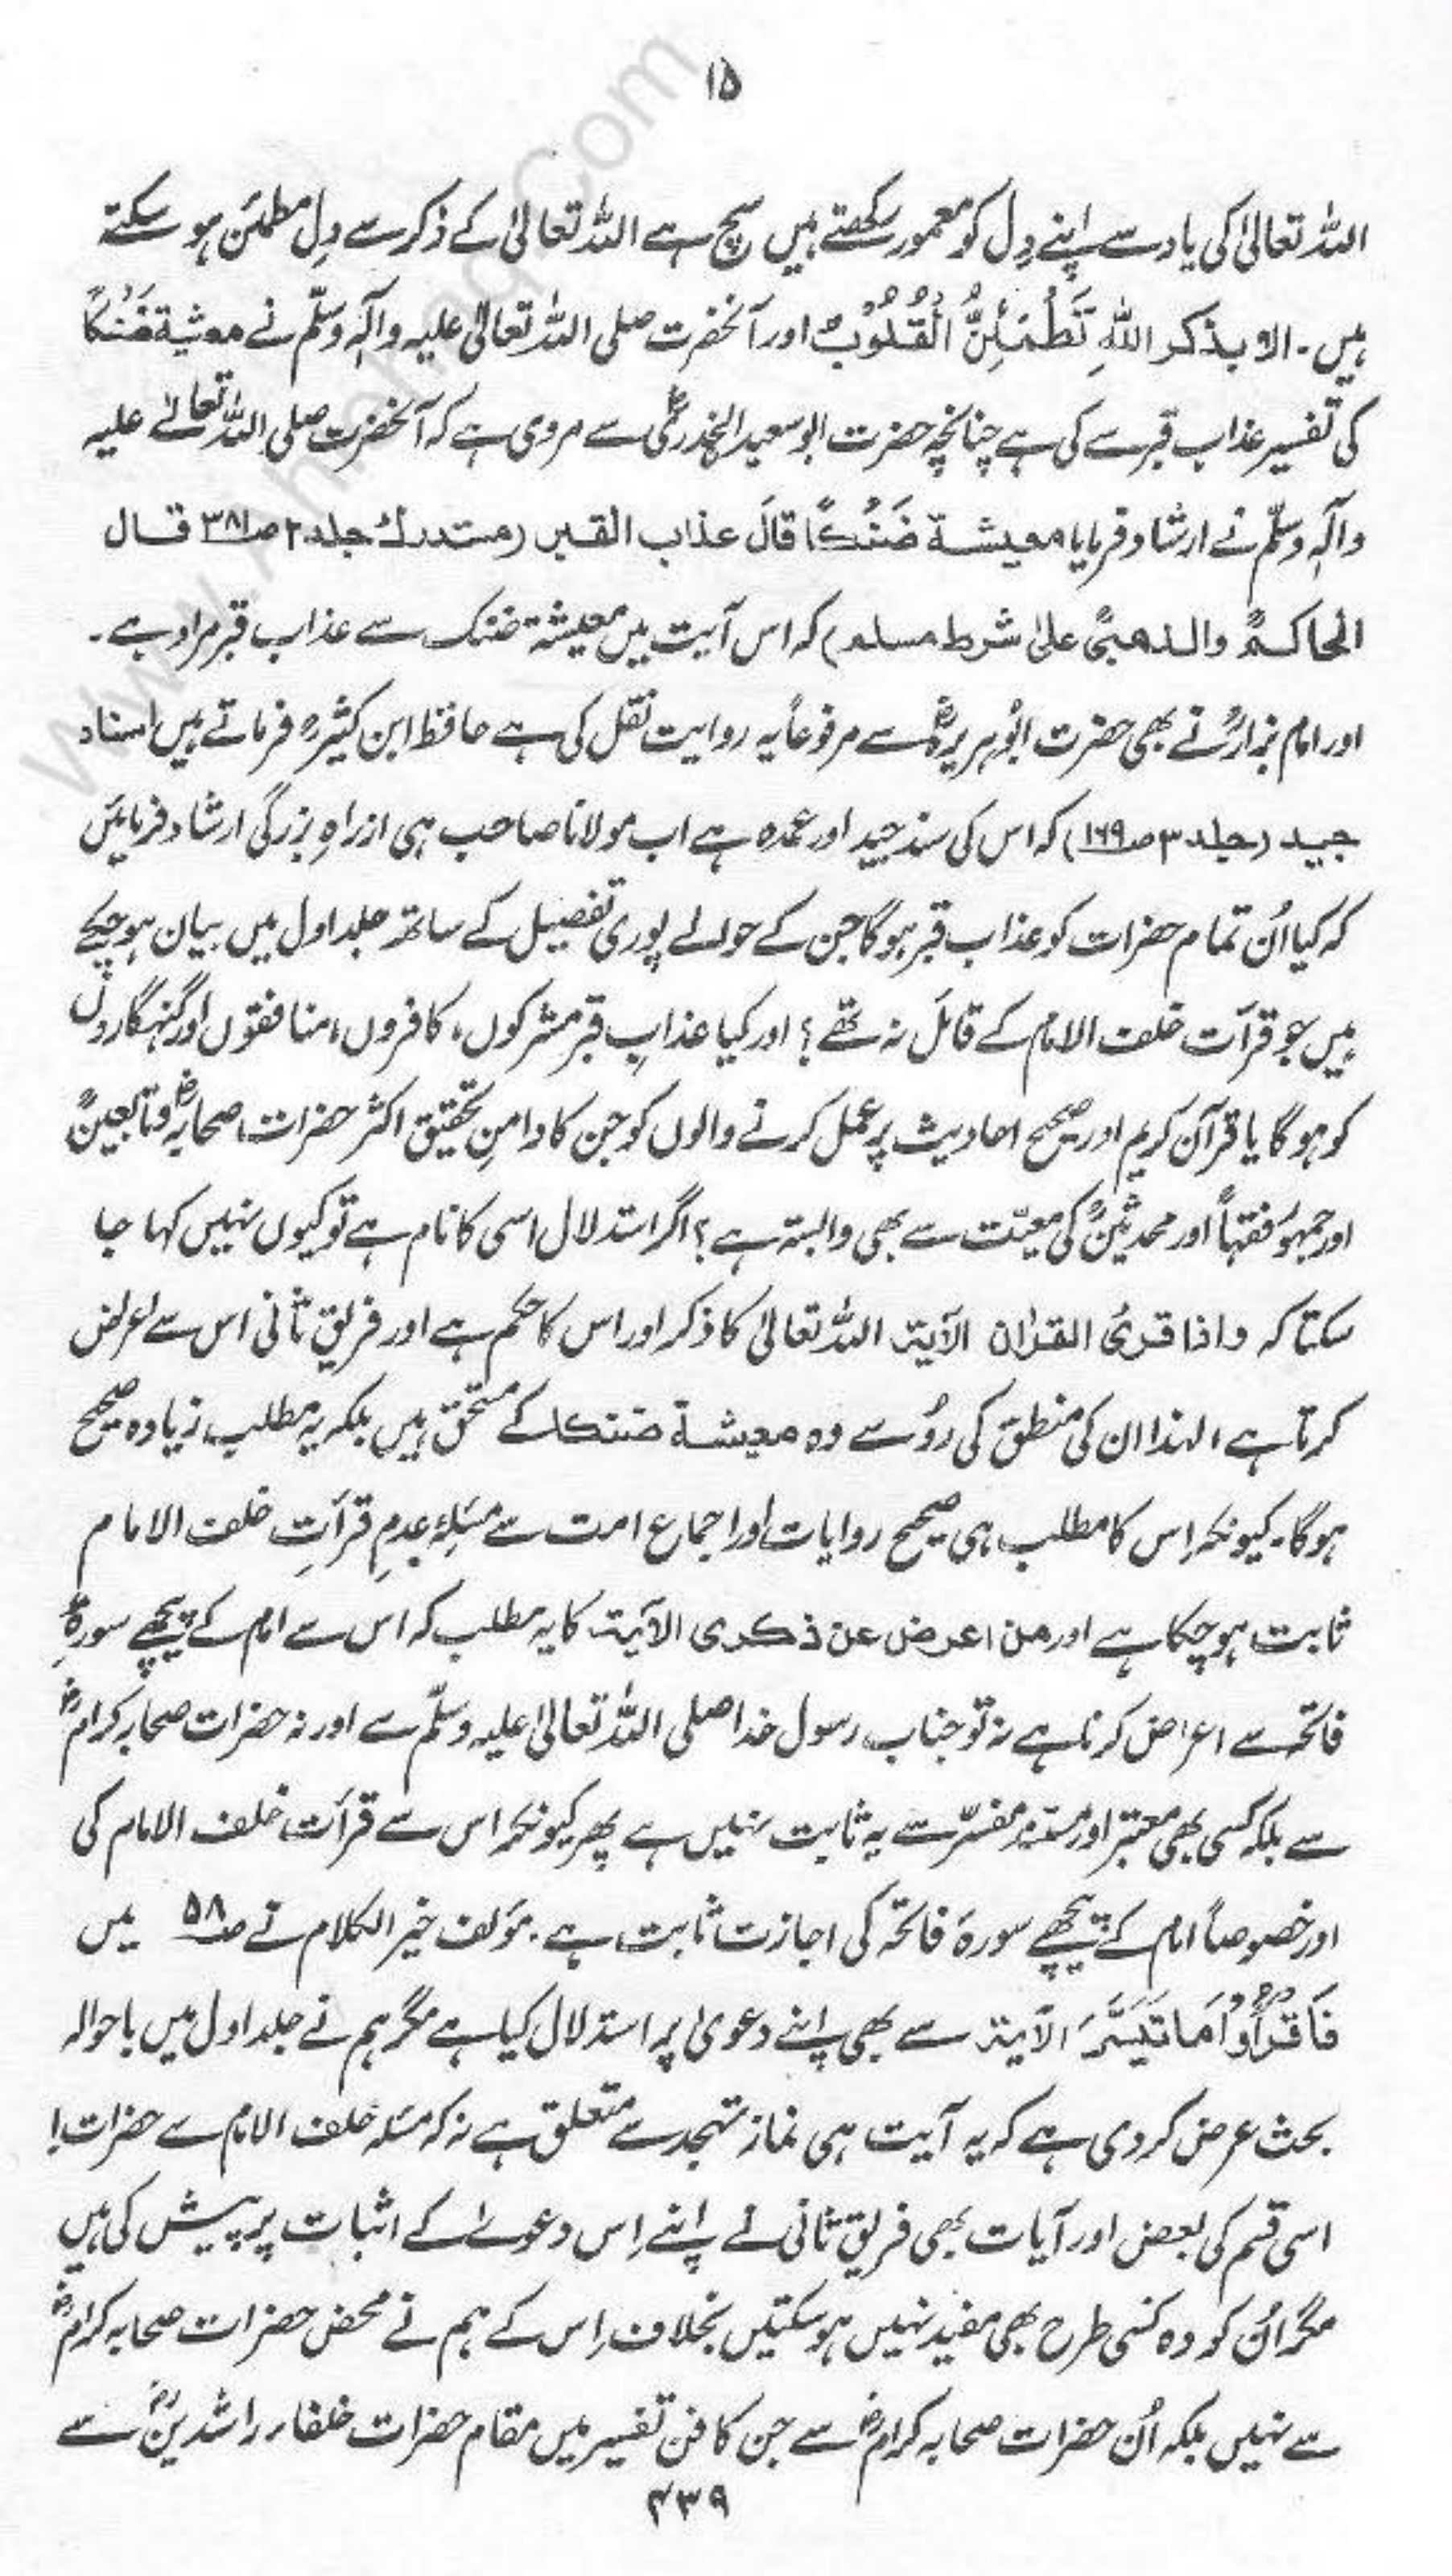 ۱۵
اللہ تعالیٰ کی یاد سے اپنے دِل کو معمور رکھتے ہیں سچ ہے اللہ تعالیٰ کے ذکر سے دِل مطمئن ہو سکتے
ہیں۔ الا بذکر اللہِ تَطْمَئِنُّ الْقُلُوْبُ اور آنحضرت صلی اللہ تعالیٰ علیہ وآلہٖ وسلّم نے معیشۃ ضَنْکًا
کی تفسیر عذاب قبر سے کی ہے چنانچہ حضرت ابو سعید الخدریؓ سے مروی ہے کہ آنحضرت صلی اللہ تعالےٰ علیہ
وآلہٖ وسلّم نے ارشاد فرمایا معیشۃ ضَنْکًا قالَ عذاب القبر (مستدرک جلد ۲ صـ۳۸۱ قال
الحاکمؒ والذھبیؒ علیٰ شرط مسلم) کہ اس آیت میں معیشۃ ضنک سے عذاب قبر مراد ہے۔
اور امام بزارؒ نے بھی حضرت ابوہریرہؓ سے مرفوعاً یہ روایت نقل کی ہے حافظ ابن کثیرؒ فرماتے ہیں اسناد
جید (جلد ۳ صـ۱۶۹) کہ اس کی سند جید اور عمدہ ہے اب مولانا صاحب ہی ازراہِ بزرگی ارشاد فرمائیں
کہ کیا اُن تمام حضرات کو عذاب قبر ہوگا جن کے حوالے پوری تفصیل کے ساتھ جلد اول میں بیان ہوچکے
ہیں جو قرآت خلف الامام کے قائل نہ تھے؟ اور کیا عذابِ قبر مشرکوں، کافروں، منافقوں اور گنہگاروں
کو ہوگا یا قرآن کریم اور صحیح احادیث پر عمل کرنے والوں کو جن کا دامنِ تحقیق اکثر حضرات صحابہؓ و تابعینؒ
اور جمہور فقہاؒ اور محدثینؒ کی معیّت سے بھی وابستہ ہے؟ اگر استدلال اسی کا نام ہے تو کیوں نہیں کہا جا
سکتا کہ واذا قرئ القراٰن الآیۃ اللہ تعالیٰ کا ذکر اور اس کا حکم ہے اور فریق ثانی اس سے اعراض
کرتا ہے، لہٰذا ان کی منطق کی رُو سے وہ معیشۃ ضنکا کے مستحق ہیں بلکہ یہ مطلب زیادہ صحیح
ہوگا۔ کیونکہ اِس کا مطلب ہی صحیح روایات اور اجماع امت سے مسٔلۂ عدمِ قرآتِ خلف الامام
ثابت ہوچکا ہے اور من اعرض عن ذکری الآیۃ کا یہ مطلب کہ اس سے امام کے پیچھے سورۂ
فاتحہ سے اعراض کرنا ہے نہ تو جناب رسول خدا صلی اللہ تعالیٰ علیہ وسلّم سے اور نہ حضرات صحابہ کرامؓ
سے بلکہ کسی بھی معتبر اور مستند مفسّر سے یہ ثابت نہیں ہے پھر کیونکر اس سے قرآت خلف الامام کی
اور خصوصاً امام کے پیچھے سورۂ فاتحہ کی اجازت ثابت ہے۔ مؤلف خیر الکلام نے صـ۵۸ میں
فَاقْرَأُوْا مَا تَیَسَّرَ الآیۃ سے بھی اپنے دعویٰ پر استدلال کیا ہے مگر ہم نے جلد اول میں باحوالہ
بحث عرض کر دی ہے کہ یہ آیت ہی نماز تہجد سے متعلق ہے نہ کہ مسٔلہ خلف الامام سے حضرات!
اسی قسم کی بعض اور آیات بھی فریق ثانی نے اپنے اِس دعوےٰ کے اثبات پر پیش کی ہیں
مگر اُن کو وہ کسی طرح بھی مفید نہیں ہوسکتیں بخلاف اِس کے ہم نے محض حضرات صحابہ کرامؓ
سے نہیں بلکہ اُن حضرات صحابہ کرامؓ سے جن کا فن تفسیر میں مقام حضرات خلفاء راشدینؓ سے
۴۳۹
www.Ahnahaq.Com